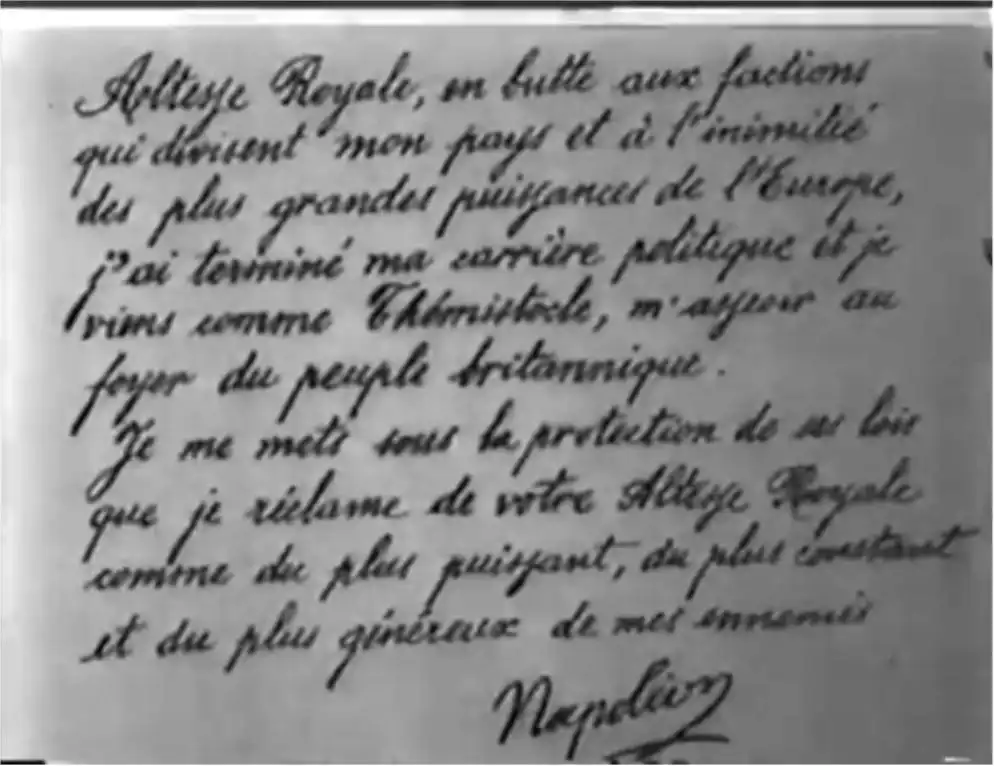 Altesse Royale, en butte aux factions
qui divisent mon pays et à l'inimitié
des plus grandes puissances de l'Europe,
j'ai terminé ma carrière politique et je
viens comme Thémistocle, m'asseoir au
foyer du peuple britannique.
Je me mets sous la protection de ses lois
que je réclame de votre Altesse Royale
comme du plus puissant, du plus constant
et du plus généreux de mes ennemis
Napoléon